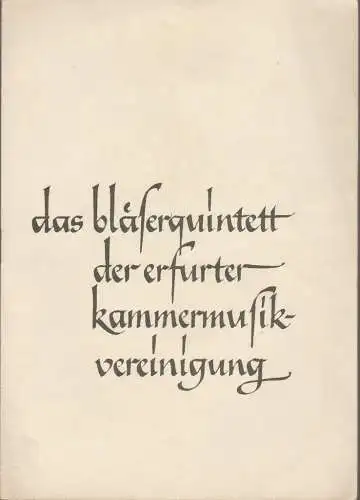 das bläſerquintett
der erfurter
kammermuſik-
vereinigung